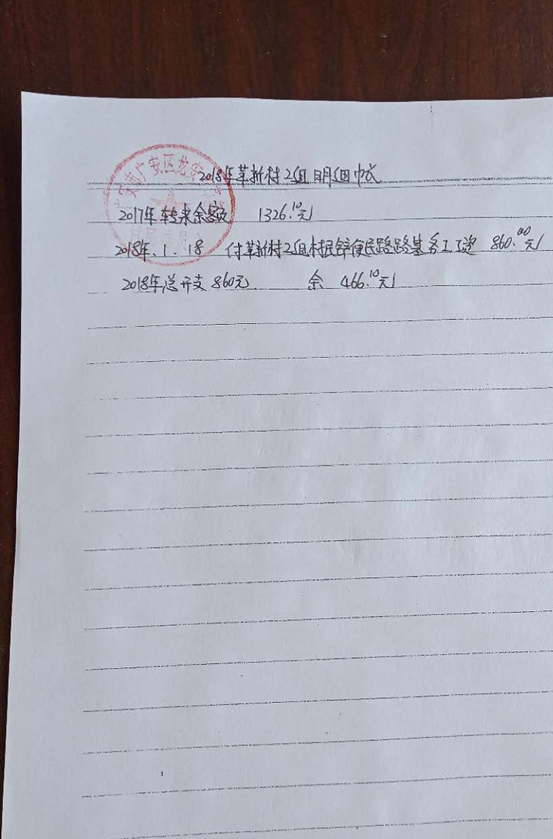 2018年革新村2组明细帐
2017年转来余额 1326.10元
2018年.1.18 付革新村2组村民 便民路路基 工 860.00元
2018年总开支860元 余 466.10元
广安区龙安